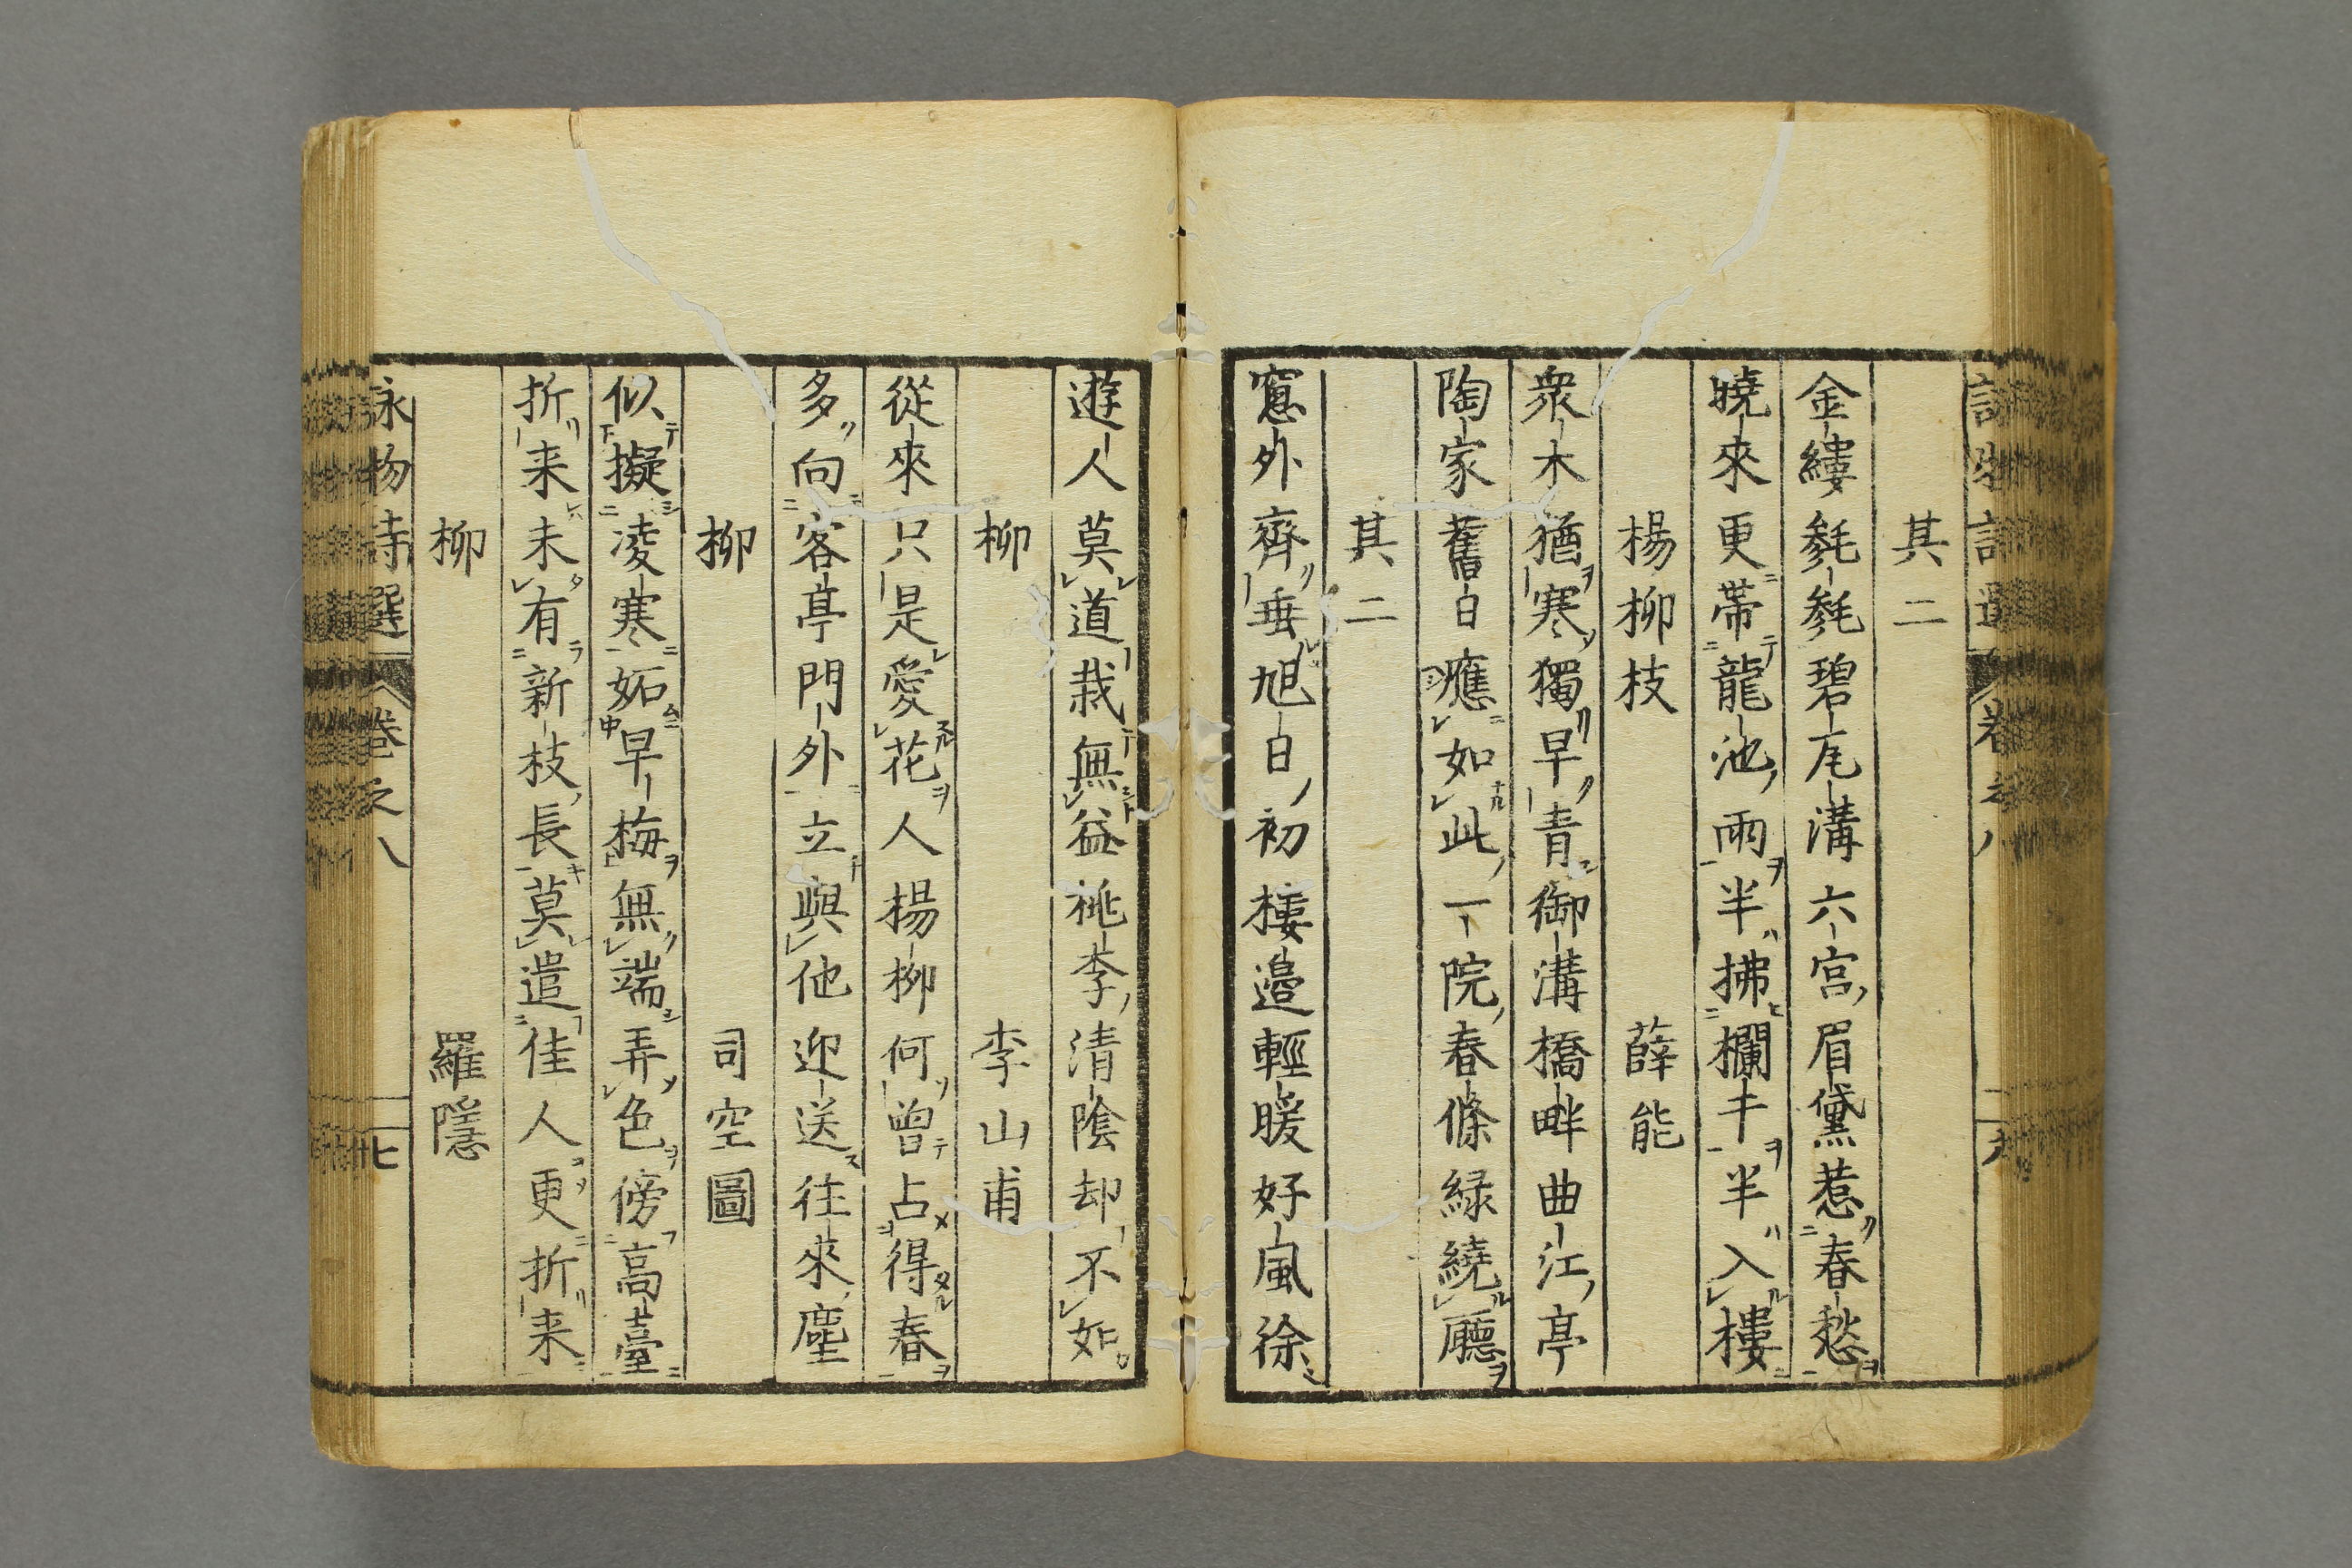 其二
金縷毿毿碧瓦溝六宮眉黛惹春愁
曉來更帶龍池雨半拂欄干半入樓
楊柳枝 薛能
衆木猶寒獨早青御溝橋畔曲江亭
陶家舊日應如此一院春條綠繞廳
其二
窻外齊垂旭日初樓邉輕暖好風徐
遊人莫道栽無益桃李清陰却不如
柳 李山甫
從來只是愛花人楊柳何曾占得春
多向客亭門外立與他迎送往來塵
柳 司空圖
似擬凌寒妬早梅無端弄色傍高臺
折来未有新枝長莫遣佳人更折来
柳 羅隱
詠物詩選 卷之八 廿七